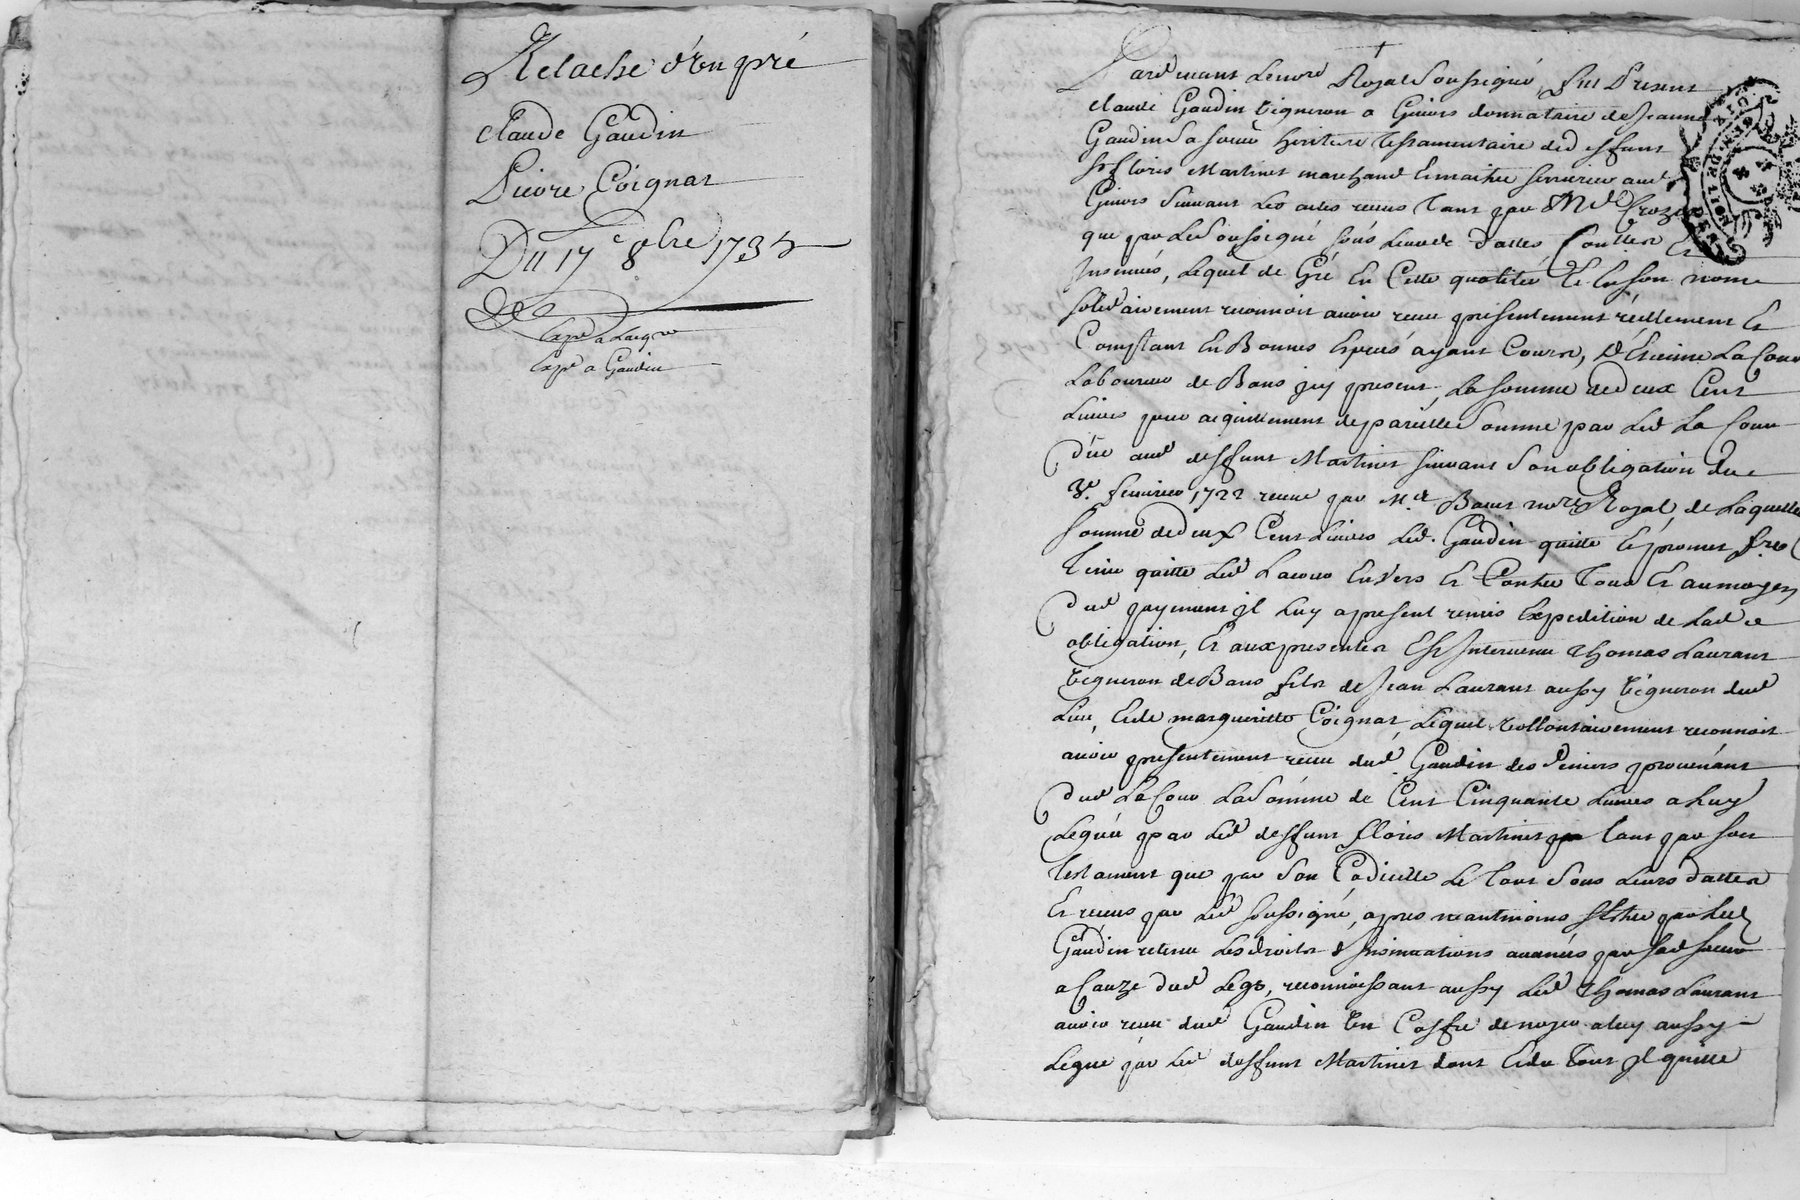 Relache d'un pré
Claude Gaudin
Pierre Coignat
Du 17e 8bre 1735
Expé a Lacq
Expé a Gaudin
Pardevant le nore Royal soussigné, fut present
claude Gaudin vigneron a Givors donnataire de Jeanne
Gaudin sa soeur heritiere testamentaire de deffunt
sr floris Martinet marchand et maitre serrurier aud
Givors suivant les actes receus tant par Me Croze
que par le soussigné sous leurs dattes Conttes et
Insinués, lequel de Gré en cette qualitée et en son nom
solidairement reconnoit avoir receu presentement réellement et
Comptant en Bonnes especes ayant Cours, d'Etienne La Cour
Laboureur de Bans icy present, la somme de deux Cent
Livres pour acquittement de pareille somme par led La Cour
düe aud deffunt Martinet suivant son obligation du
3e. fevrier 1722 receue par Me. Bours nore Royal, de laquelle
somme de deux Cent Livres led. Gaudin quitte et promet fre
tenir quitte led Lacour envers et Contre tous et au moyen
dud payement il luy a present remis expedition de lad
obligation, et aux presentes est Intervenu thomas Laurans
vigneron de Bans fils de Jean Laurans aussy vigneron dud
Lieu, et de margueritte Coignat, lequel vollontairement reconnoit
avoir presentement receu dud Gaudin des deniers provenants
dud La Cour la somme de Cent Cinquante Livres a luy
Leguée par led deffunt floris Martinet tant par son
testament que par son Codicille le tout sous leurs dattes
et receus par led soussigné, apres neantmoins par led
Gaudin retenu les droits d'Insinuations avancés par sad soeur
a Cauze dud Legs, reconnoissant aussy led thomas Laurans
avoir receu dud Gaudin un Coffre de noyer a luy aussy
Legué par led deffunt Martinet dont et du tout il quitte